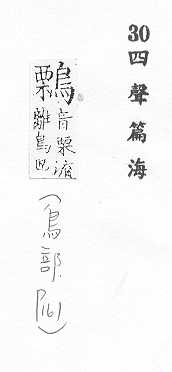 30四聲篇海
鷅音栗流
離鳥也
(鳥部 P161)